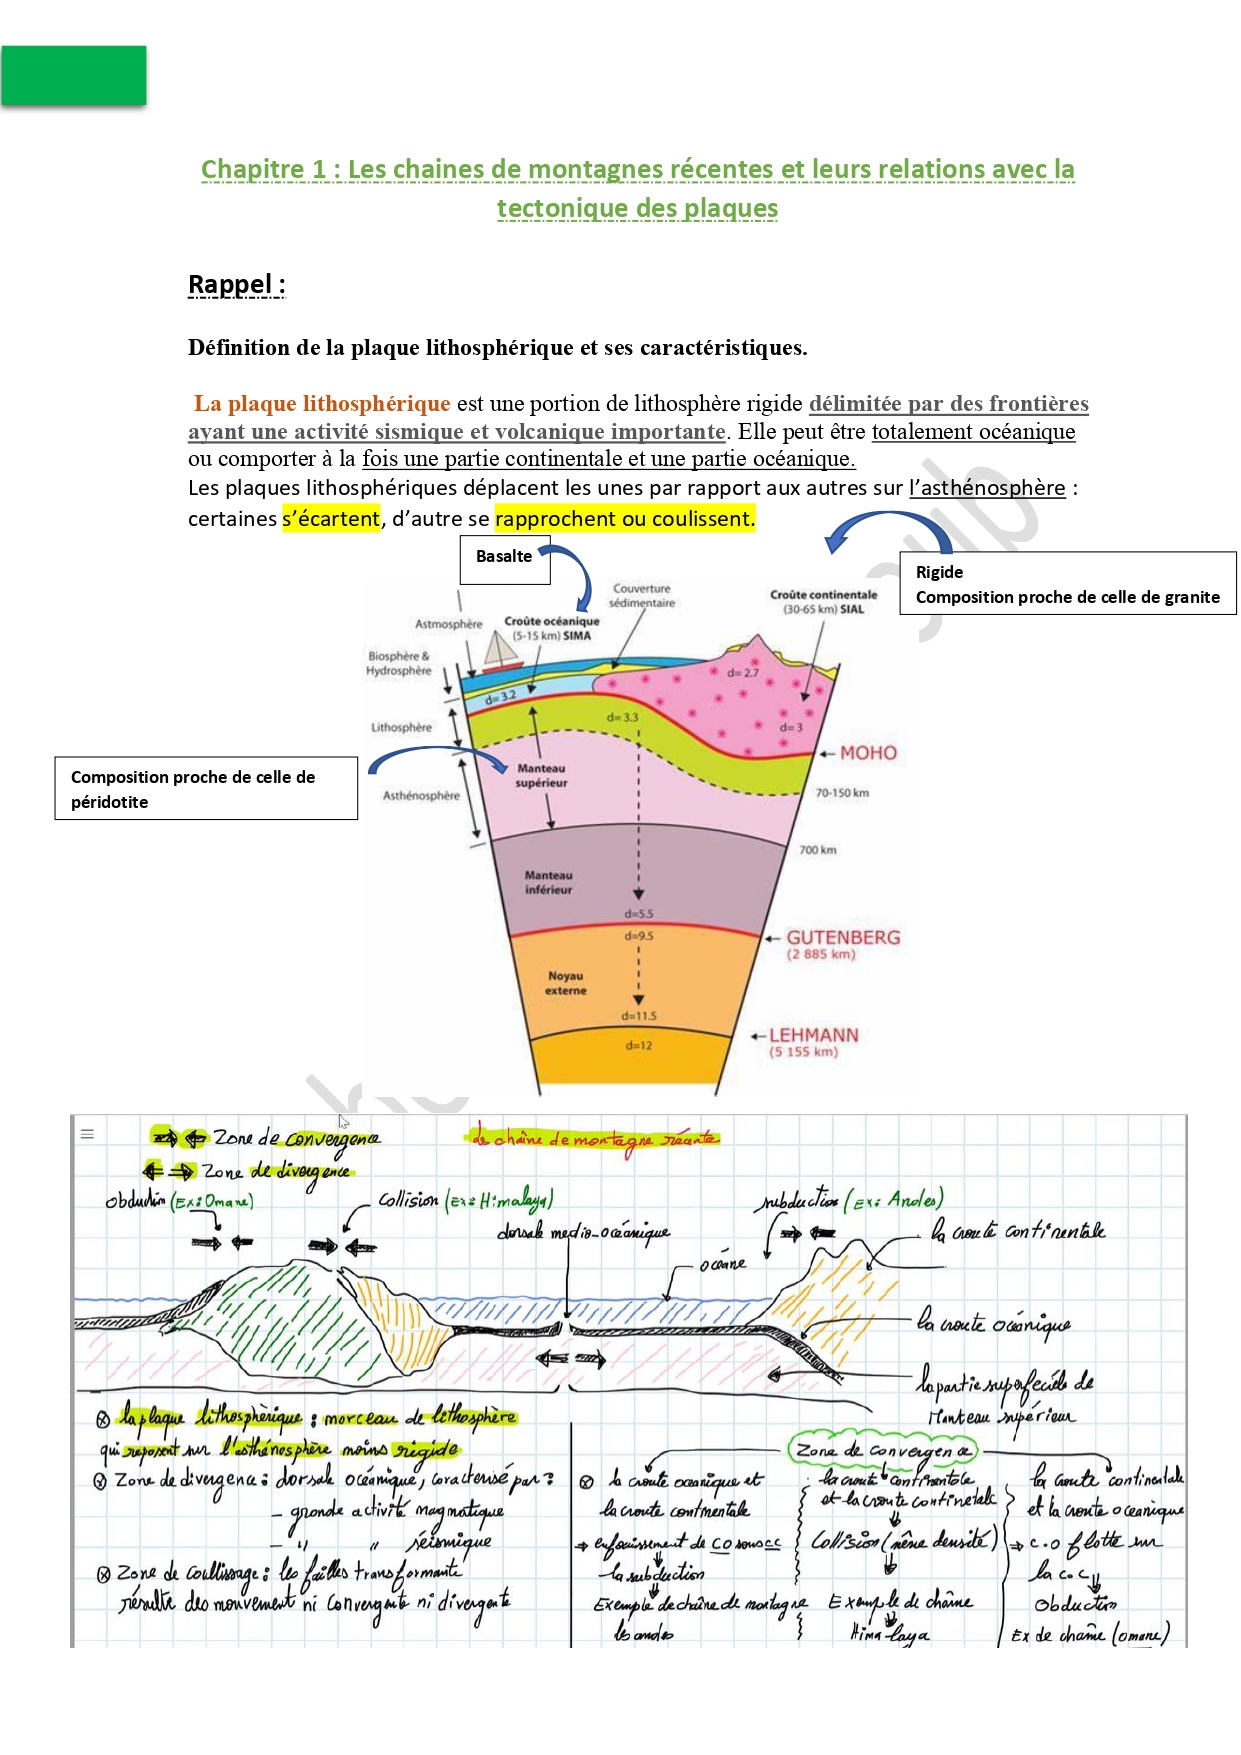 Chapitre 1 : Les chaines de montagnes récentes et leurs relations avec la
tectonique des plaques
Rappel :
Définition de la plaque lithosphérique et ses caractéristiques.
La plaque lithosphérique est une portion de lithosphère rigide délimitée par des frontières
ayant une activité sismique et volcanique importante. Elle peut être totalement océanique
ou comporter à la fois une partie continentale et une partie océanique.
Les plaques lithosphériques déplacent les unes par rapport aux autres sur l'asthénosphère :
certaines s'écartent, d'autre se rapprochent ou coulissent.
Basalte
Rigide
Composition proche de celle de granite
Couverture
sédimentaire
Croûte continentale
(30-65 km) SIAL
Astmosphère
Croûte océanique
(5-15 km) SIMA
Biosphère &
Hydrosphère
d= 2.7
d= 3.2
d= 3.3
d= 3
Lithosphère
MOHO
Composition proche de celle de
péridotite
Manteau
supérieur
Asthénosphère
70-150 km
700 km
Manteau
inférieur
d=5.5
d=9.5
GUTENBERG
(2 885 km)
Noyau
externe
d=11.5
LEHMANN
(5 155 km)
d=12
Zone de convergence
de chaîne de montagne récente
Zone de divergence
obduction (Ex: Omane)
Collision (Ex: Himalaya)
subduction (Ex: Andes)
dorsale medio-océanique
la croute continentale
océane
la croute océanique
la partie superfeciele de
Manteau supérieur
la plaque lithosphérique : morceau de lithosphère
qui reposent sur l'asthénosphère moins rigide
Zone de convergence
Zone de divergence : dorsale océanique, caractérisé par :
- grande activité magmatique
- " " séismique
Zone de coullissage : les failles transformante
résulte des mouvement ni convergente ni divergente
la croute oceanique et
la croute continentale
⇒ enfouissement de CO sous cc
la subduction
Exemple de chaîne de montagne
les andes
la croute continentale
et la croute continetale
Collision (même densité)
Exemple de chaîne
Himalaya
la croute continentale
et la croute oceanique
⇒ c.o flotte sur
la c.c
Obduction
Ex de chaîne (omane)